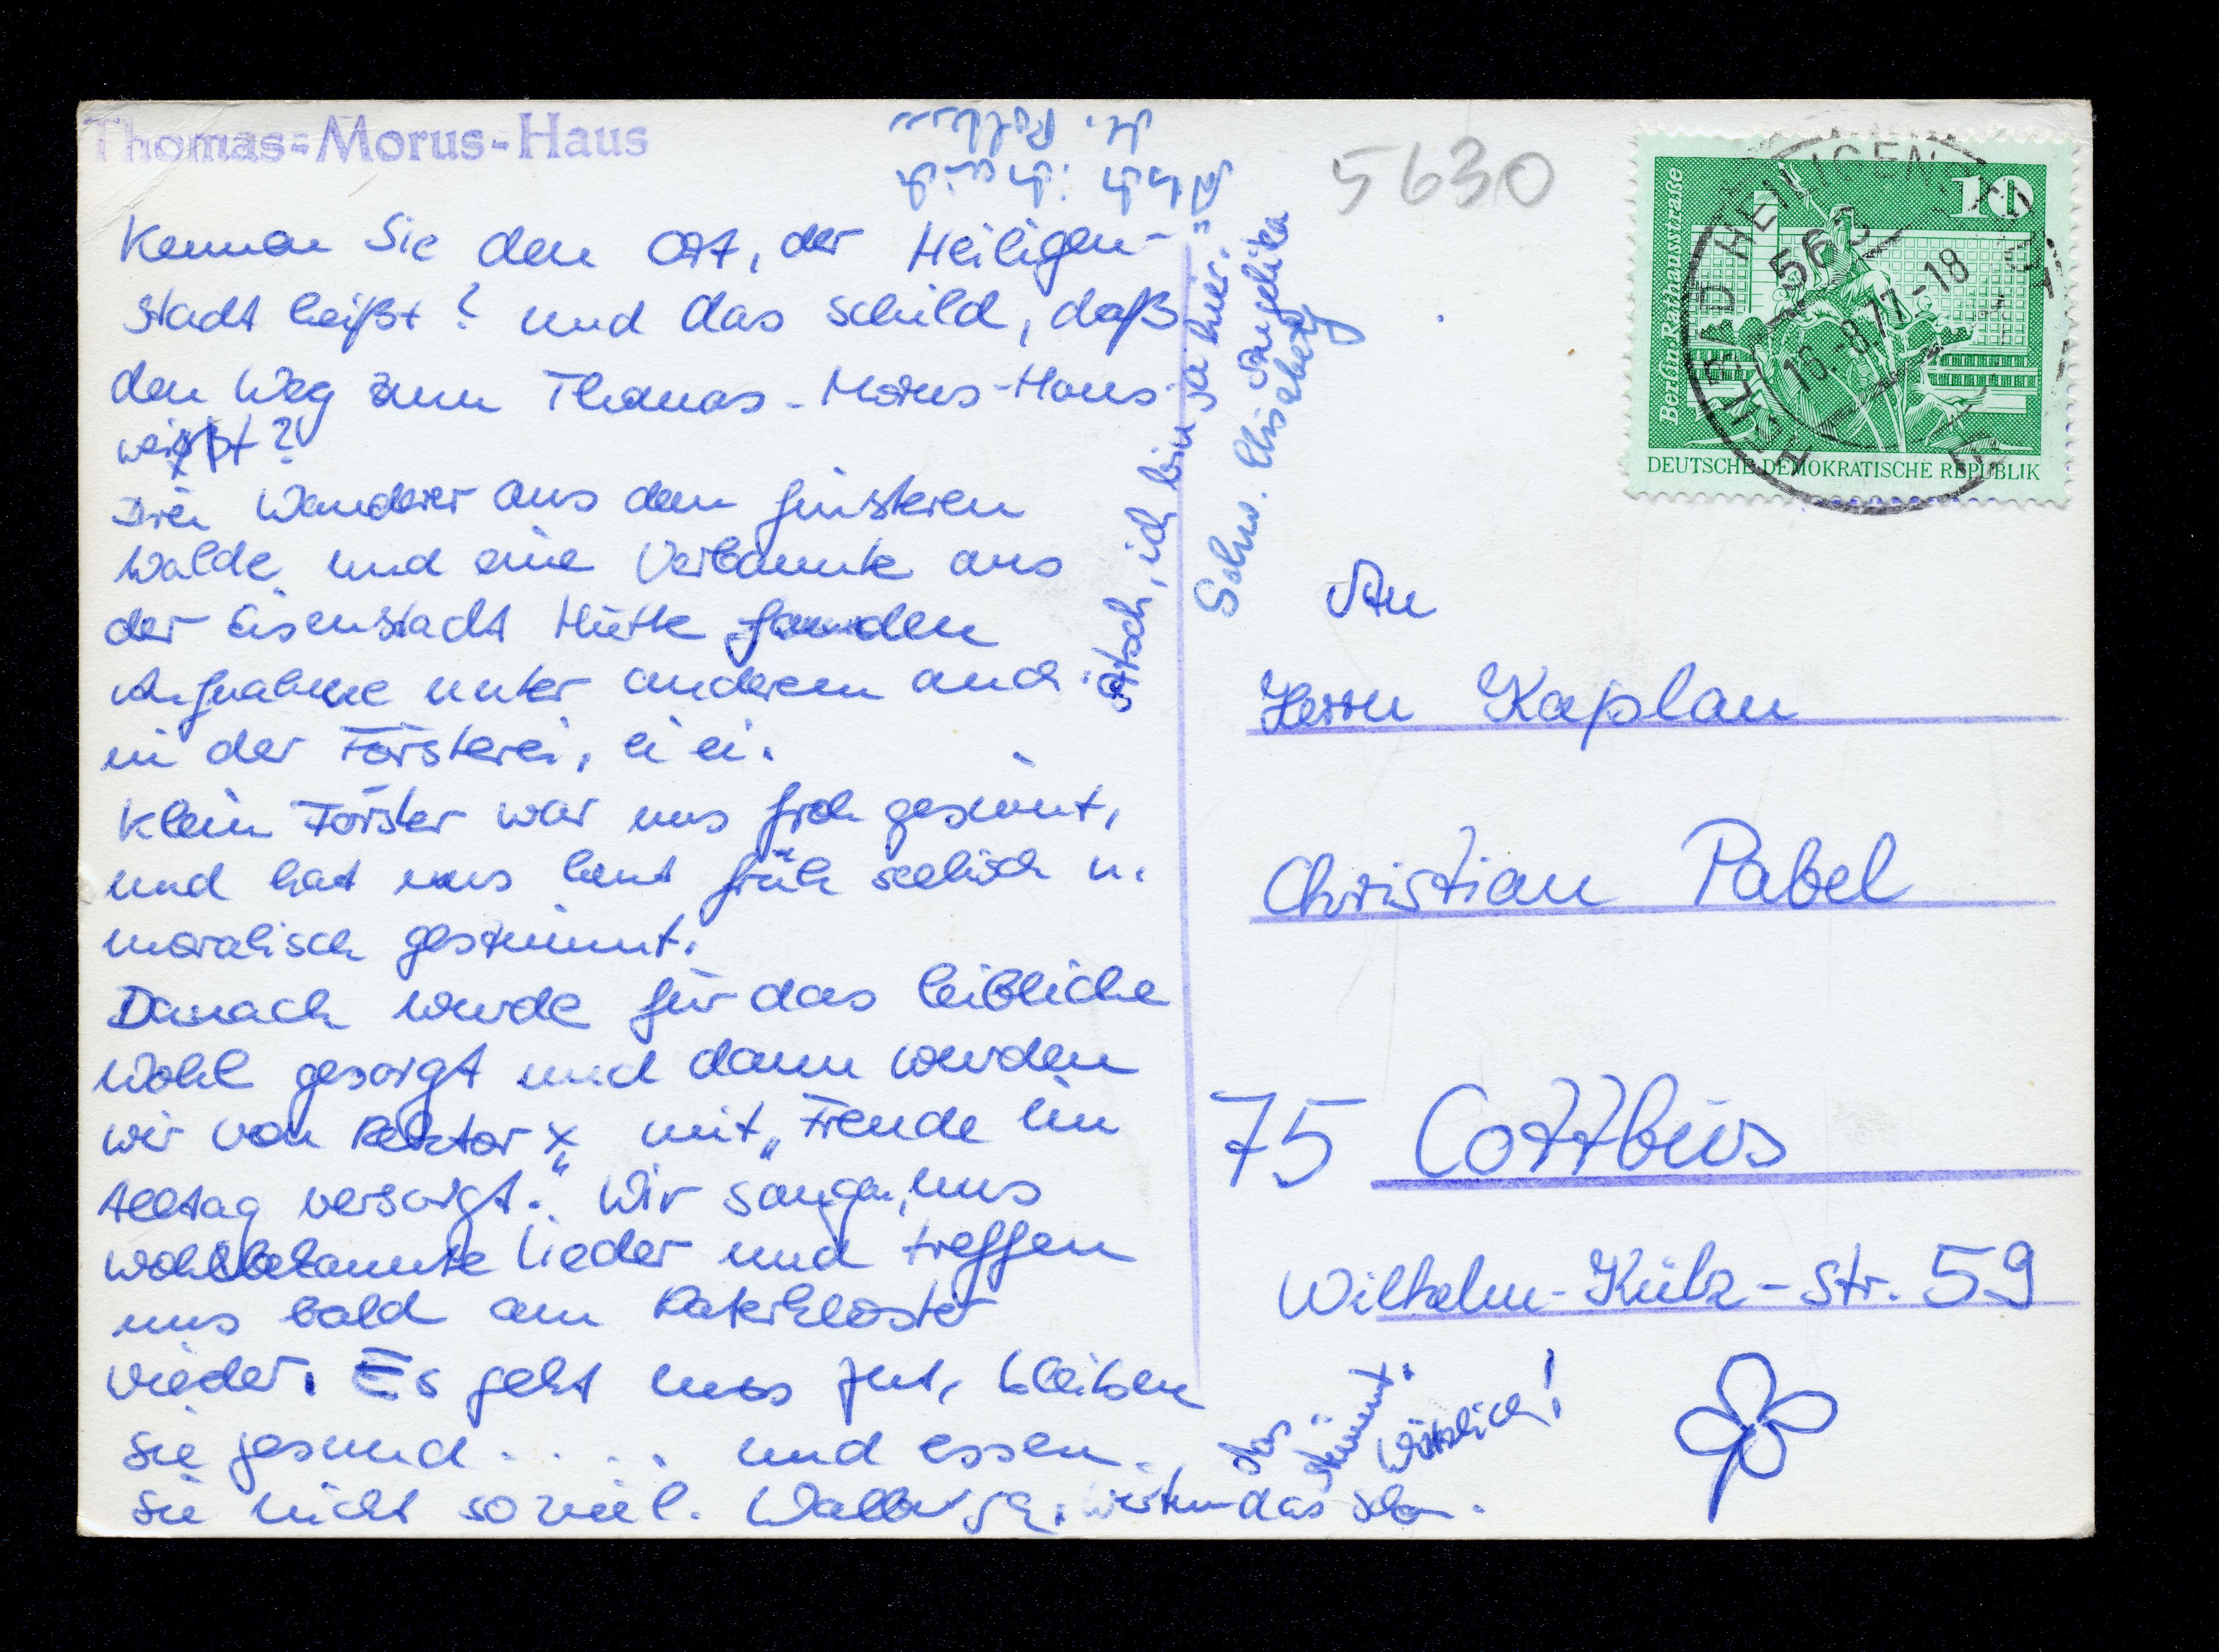 Thomas-Morus-Haus
Kennen Sie den Ort, der Heiligen-
stadt heißt? und das Schild, daß
den Weg zum Thomas-Morus-Haus
weißt?
Drei Wanderer aus dem finsteren
Walde und eine Verbannte aus
der Eisenstadt Hütte fanden
Aufnahme unter anderem auch
in der Försterei, ei ei.
Klein Förster war uns froh gesinnt,
und hat uns heut früh seelisch u.
moralisch gestimmt.
Danach wurde für das leibliche
Wohl gesorgt und dann wurden
wir von Rektor X, mit „Freude im
Alltag" versorgt. Wir sangen uns
wohlbekannte Lieder und treffen
uns bald am Katerkloster
wieder. Es geht uns jut, bleiben
Sie gesund..... und essen
Sie nicht so viel. das schon.
Das
stimmt.
wirklich!
Ätsch, ich bin ja hier."
Schw. Elisabeth
Angelika
5630
Berlin·Rathausstraße
10
DEUTSCHE DEMOKRATISCHE REPUBLIK
HEILBAD HEILIGENSTADT
563
16.-8.77-18
An
Herrn Kaplan
Christian Pabel
75 Cottbus
Wilhelm-Külz-Str. 59